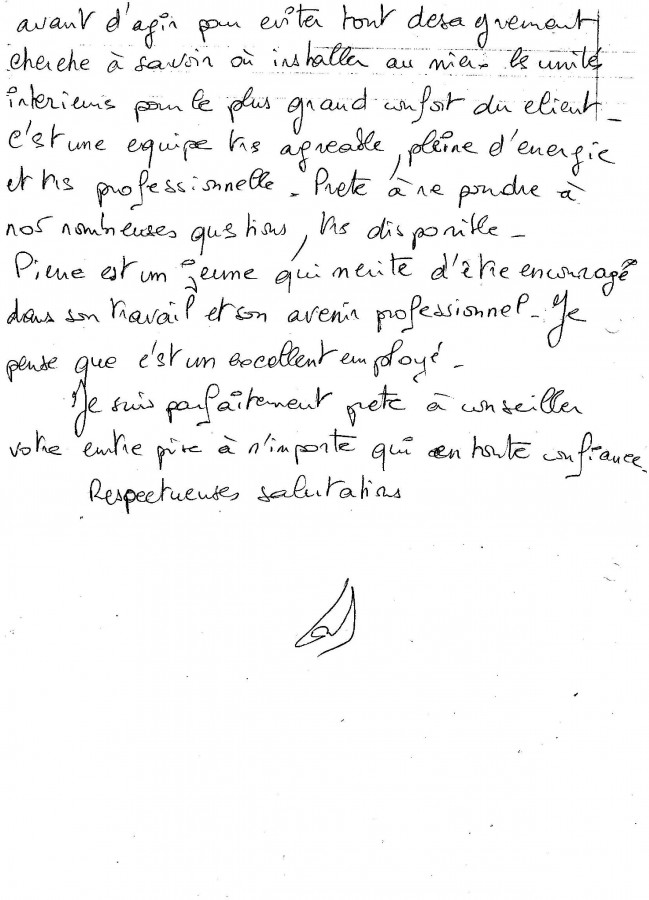 avant d'agir pour eviter tout desagrement
cherche à savoir où installer au mieux les unités
interieurs pour le plus grand confort du client_
C'est une equipe trs agreable, pleine d'energie
et trs professionnelle_ Prete à re pondre à
nos nombreuses questions, trs disponible_
Pierre est un jeune qui merite d'être encouragé
dans son travail et son avenir professionnel_ Je
pense que c'est un excellent employé_
Je suis parfaitement prete à conseiller
votre entre prise à n'importe qui en toute confiance
Respectueuses salutations